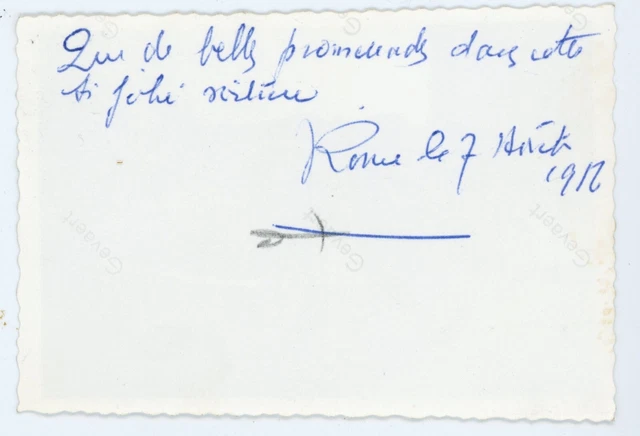 Que de belles promenades dans cette
si jolie voiture
Rome le 7 Août
Gevaert
Gevaert
Gevaert